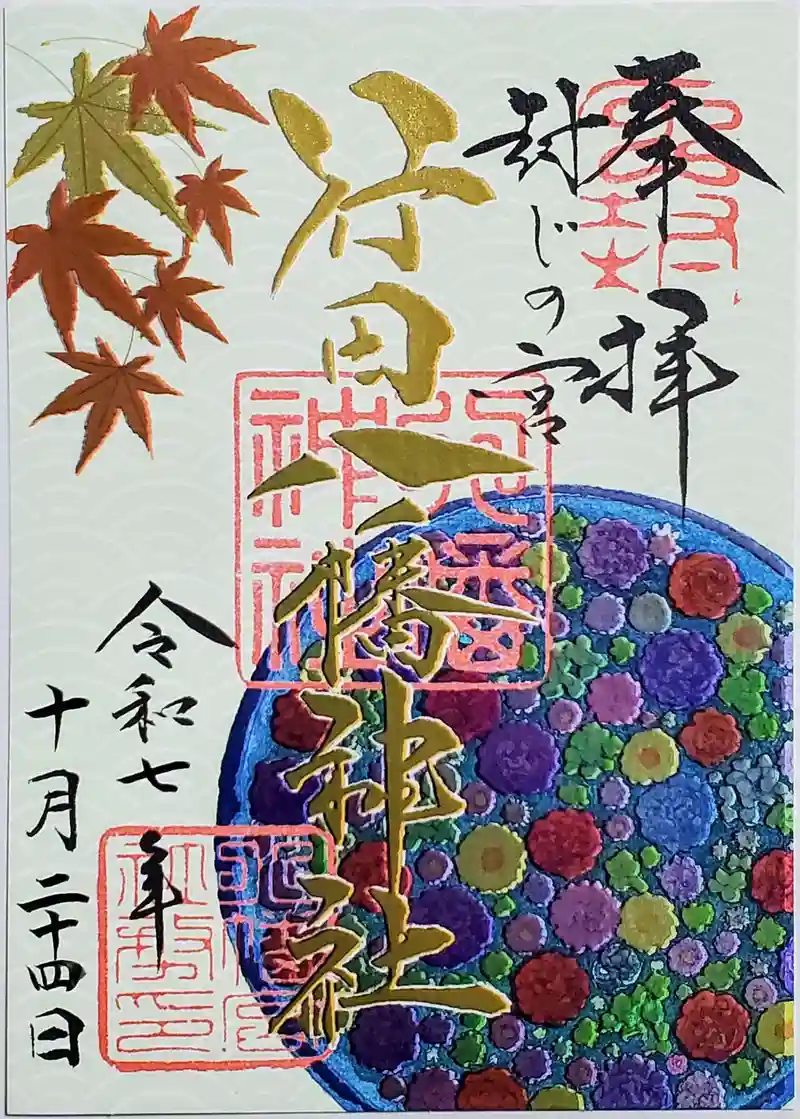 奉拝
封じの宮
行田八幡神社
令和七年
十月二十四日
八幡神社